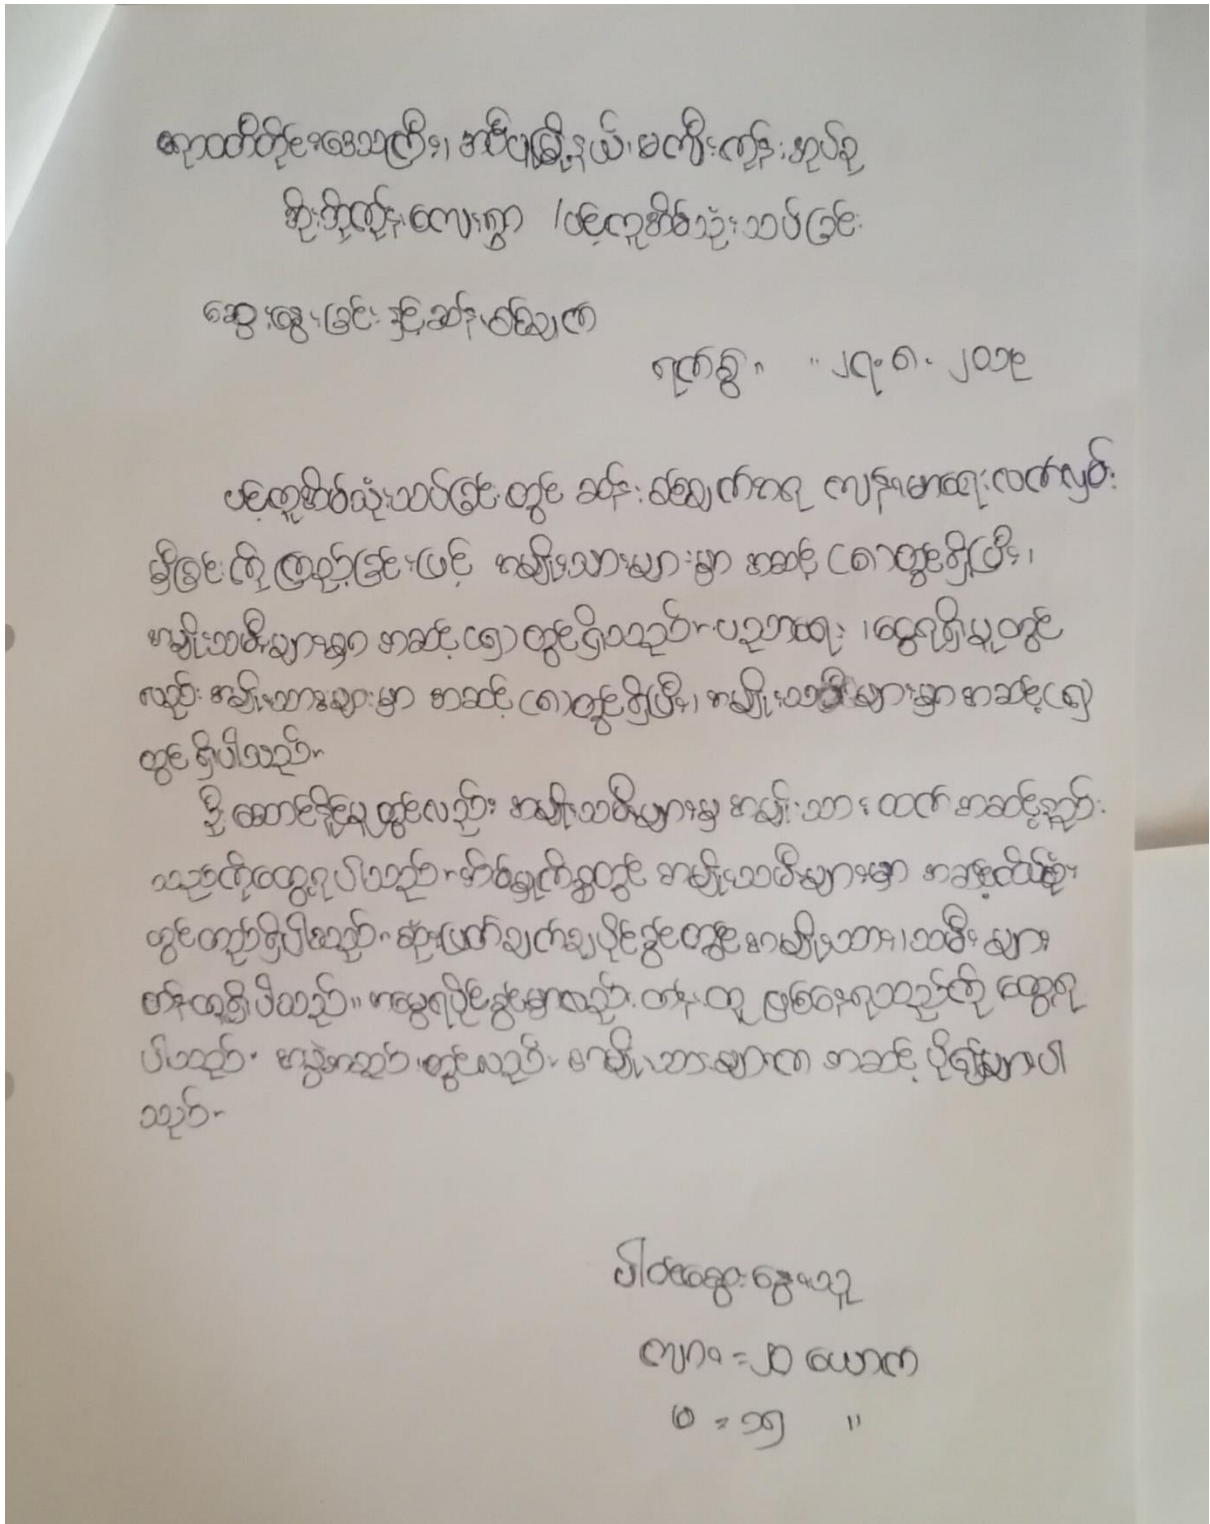 ဧရာဝတီတိုင်းဒေသကြီး၊ အိမ်မဲမြို့နယ်၊ မကျီးကုန်း အုပ်စု
အိုးဘိုကုန်းကျေးရွာ /ပင့်ကူအိမ်သုံးသပ်ခြင်း
ဆွေးနွေးခြင်း နှင့်ဆန်းစစ်ချက်
ရက်စွဲ။ ။ ၂၇.၈. ၂၀၁၉
ပင့်ကူအိမ်သုံးသပ်ခြင်းတွင် ဆန်းစစ်ချက်အရ ကျန်းမာရေးလက်လှမ်း
မှီခြင်းကို ကြည့်ခြင်းဖြင့် အမျိုးသားများမှာ အဆင့် (၈)တွင်ရှိပြီး၊
အမျိုးသမီးများမှာ အဆင့်(၅)တွင်ရှိသည်။ ပညာရေး၊ ငွေရရှိမှုတွင်
လည်း အမျိုးသားများမှာ အဆင့်(၈)တွင်ရှိပြီး၊ အမျိုးသမီးများမှာ အဆင့်(၅)
တွင် ရှိပါသည်။
ဦးဆောင်နိုင်မှုတွင်လည်း အမျိုးသမီးများမှ အမျိုးသားထက် အဆင့်နည်း
သည်ကိုတွေ့ရပါသည်။ အိမ်မှုကိစ္စတွင် အမျိုးသမီးများမှာ အဆင့်ထိပ်ဆုံး
တွင်တည်ရှိပါသည်။ ဆုံးဖြတ်ချက်ချပိုင်ခွင့်တွင် အမျိုးသား၊သမီး များ
တန်းတူရှိပါသည်။ အမွေရပိုင်ခွင့်မှာလည်း တန်းတူ ဖြစ်နေရသည်ကို တွေ့ရ
ပါသည်။ အဖွဲ့အစည်းတွင်လည်း အမျိုးသားများက အဆင့် ပို၍များပါ
သည်။
ပါဝင်ဆွေးနွေးသူ
ကျား = ၂၀ ယောက်
မ = ၁၅ "